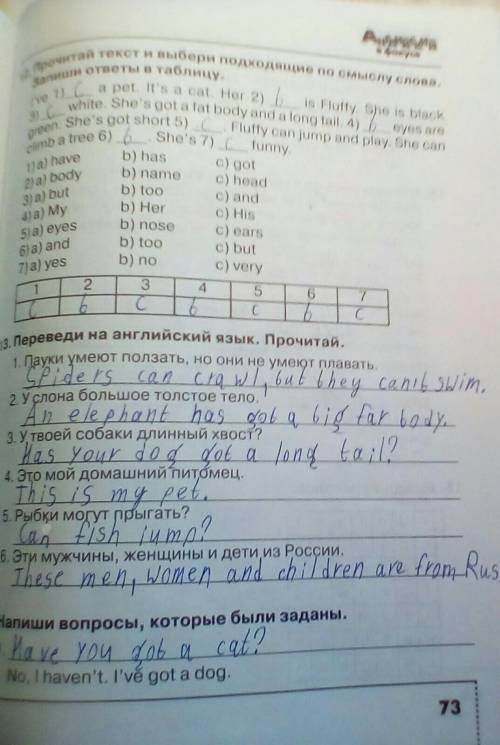 Прочитай текст и выбери подходящие по смыслу слова.
Запиши ответы в таблицу.
I've 1) c a pet. It's a cat. Her 2) b is Fluffy. She is black
3) c white. She's got a fat body and a long tail. 4) b eyes are
green. She's got short 5) c. Fluffy can jump and play. She can
climb a tree 6) b. She's 7) c funny.
1) a) have b) has c) got
2) a) body b) name c) head
3) a) but b) too c) and
4) a) My b) Her c) His
5) a) eyes b) nose c) ears
6) a) and b) too c) but
7) a) yes b) no c) very
1 2 3 4 5 6 7
c b c b c b c
3. Переведи на английский язык. Прочитай.
1. Пауки умеют ползать, но они не умеют плавать.
Spiders can crawl, but they can't swim.
2. У слона большое толстое тело.
An elephant has got a big fat body.
3. У твоей собаки длинный хвост?
Has your dog got a long tail?
4. Это мой домашний питомец.
This is my pet.
5. Рыбки могут прыгать?
Can fish jump?
6. Эти мужчины, женщины и дети из России.
These men, women and children are from Rus
Напиши вопросы, которые были заданы.
Have you got a cat?
No, I haven't. I've got a dog.
73